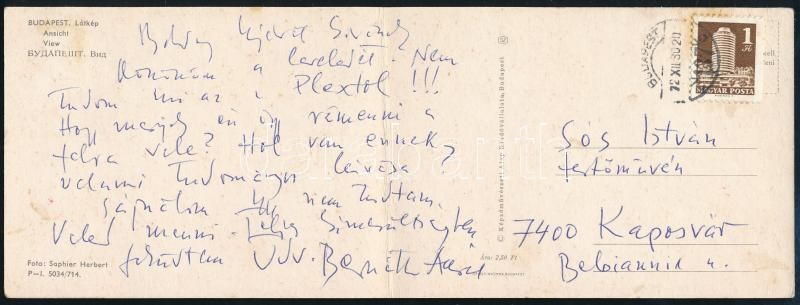 BUDAPEST. Látkép
Ansicht
View
БУДАПЕШТ. Вид
Boldog Újévet Kívánok
Köszönöm a leveledet. Nem
Tudom mi az a Plextol !!!
Hogy menjek én így rámenni a
falra vele? Hol van ennek
valami Tudományos leírása?
Sajnálom nem tudtam
Veled menni.
Üdv. Bernáth Aurél
Foto: Saphier Herbert
P-I. 5034/714.
© Képzőművészeti Alap Kiadóvállalata, Budapest
Ára: 2,50 Ft
BUDAPEST
72 XII 30 20
1 Ft
MAGYAR POSTA
Sós István
festőművész
7400 Kaposvár
Beloiannis u.